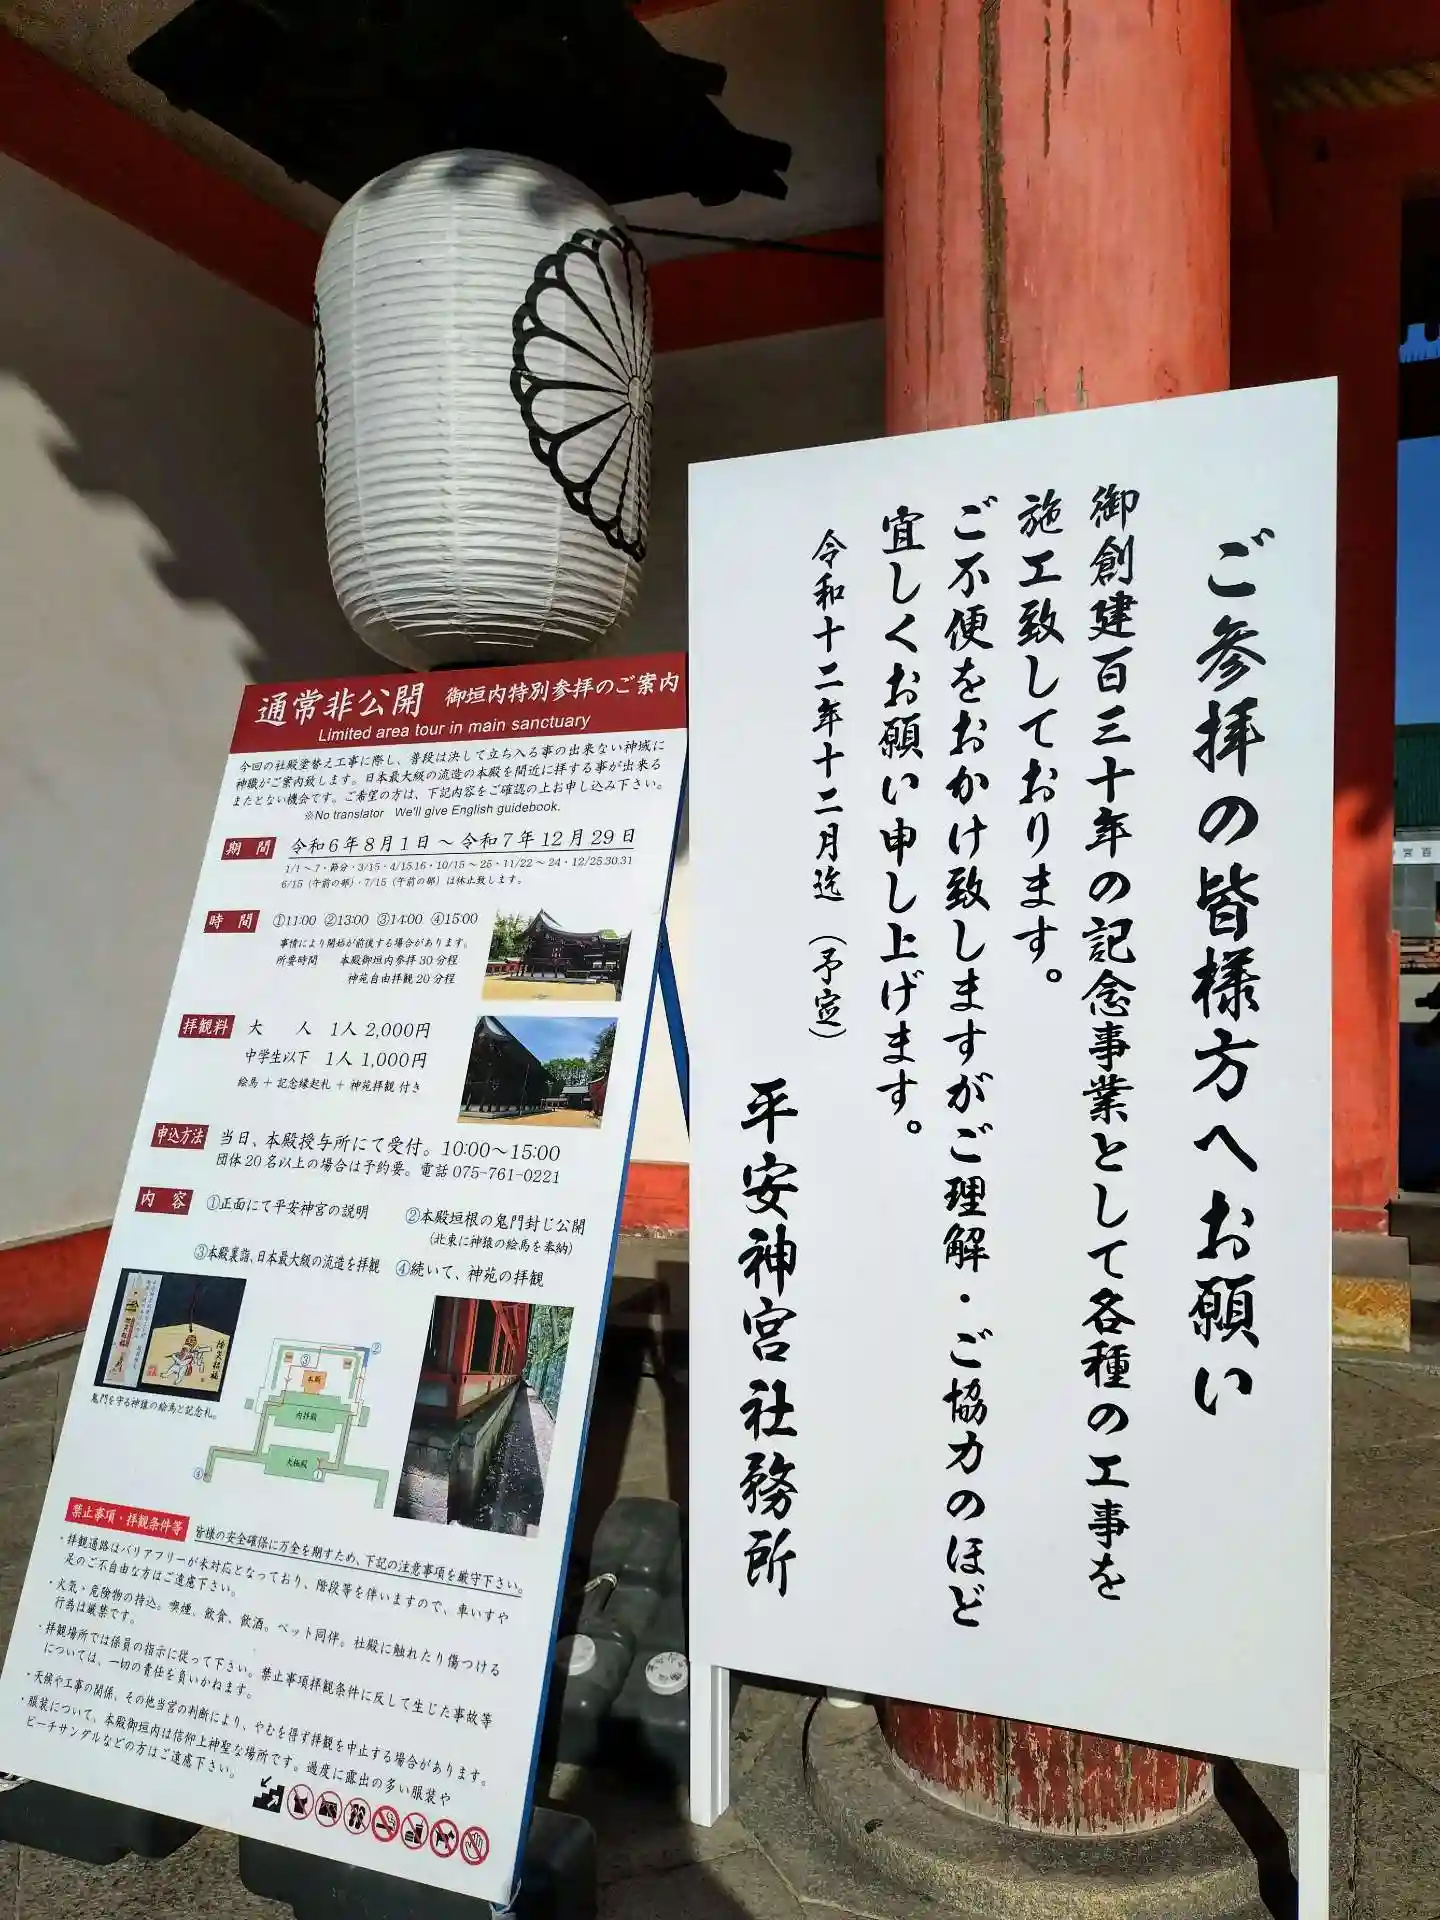 通常非公開 御垣内特別参拝のご案内
Limited area tour in main sanctuary
今回の社殿塗替え工事に際し、普段は決して立ち入る事の出来ない神域に
神職がご案内致します。日本最大級の流造の本殿を間近に拝する事が出来る
またとない機会です。ご希望の方は、下記内容をご確認の上お申し込み下さい。
※No translator We'll give English guidebook.
期間 令和6年8月1日～令和7年12月29日
1/1～7・節分・3/15・4/15.16・10/15～25・11/22～24・12/25.30.31
6/15（午前の部）・7/15（午前の部）は休止致します。
時間 ①11:00 ②13:00 ③14:00 ④15:00
事情により開始が前後する場合があります。
所要時間 本殿御垣内参拝30分程
神苑自由拝観20分程
拝観料 大人 1人 2,000円
中学生以下 1人 1,000円
絵馬 + 記念縁起札 + 神苑拝観 付き
申込方法 当日、本殿授与所にて受付。10:00～15:00
団体20名以上の場合は予約要。電話 075-761-0221
内容 ①正面にて平安神宮の説明 ②本殿垣根の鬼門封じ公開
（北東に神猿の絵馬を奉納）
③本殿裏詣、日本最大級の流造を拝観 ④続いて、神苑の拝観
鬼門を守る神猿の絵馬と記念札。
②
③
本殿
内拝殿
大極殿
①
④
禁止事項・拝観条件等 皆様の安全確保に万全を期すため、下記の注意事項を厳守下さい。
・拝観通路はバリアフリーが未対応となっており、階段等を伴いますので、車いすや
足のご不自由な方はご遠慮下さい。
・火気・危険物の持込。喫煙、飲食、飲酒。ペット同伴。社殿に触れたり傷つける
行為は厳禁です。
・拝観場所では係員の指示に従って下さい。禁止事項拝観条件に反して生じた事故等
については、一切の責任を負いかねます。
・天候や工事の関係、その他当宮の判断により、やむを得ず拝観を中止する場合があります。
・服装について、本殿御垣内は信仰上神聖な場所です。過度に露出の多い服装や
ビーチサンダルなどの方はご遠慮下さい。
ご参拝の皆様方へお願い
御創建百三十年の記念事業として各種の工事を
施工致しております。
ご不便をおかけ致しますがご理解・ご協力のほど
宜しくお願い申し上げます。
令和十二年十二月迄（予定）
平安神宮社務所